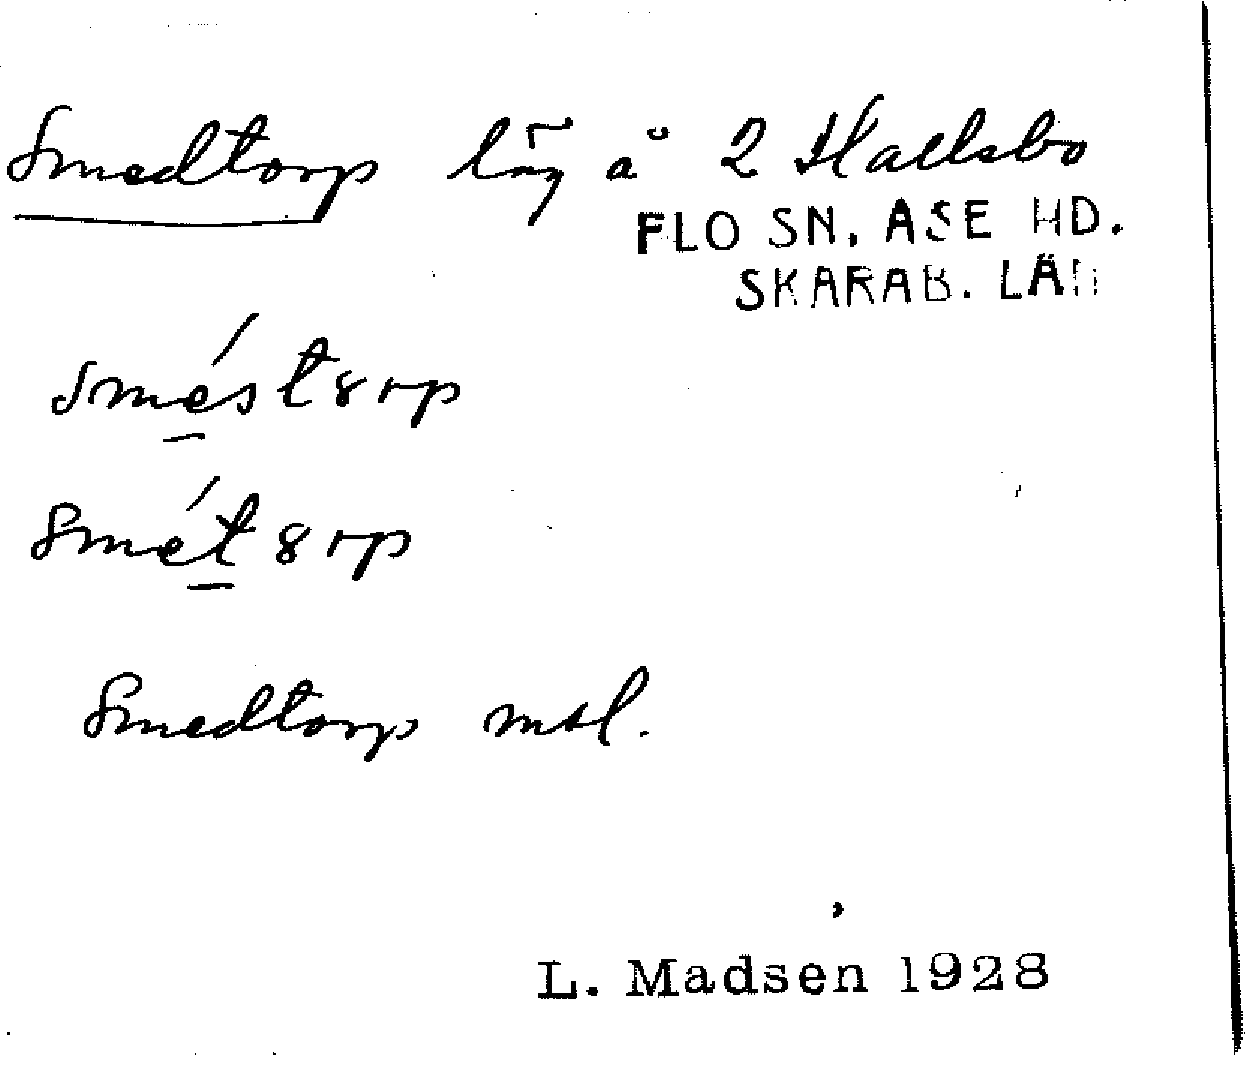 Smedtorp låg å 2 Hallsbo
FLO SN. ÅSE HD.
SKARAB. LÄN
sméstɤrp
smétɤrp
Smedtorp msl.
L. Madsen 1928